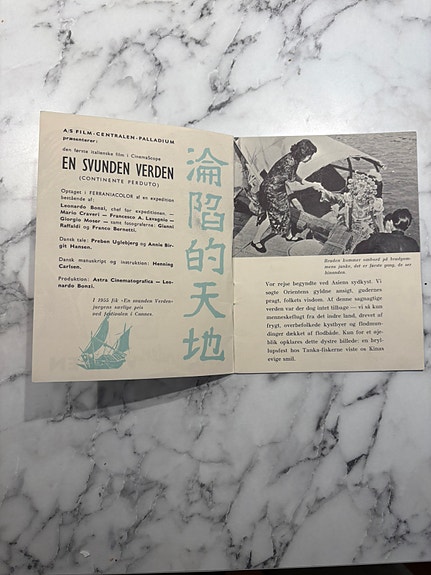 A/S FILM-CENTRALEN-PALLADIUM
præsenterer:
den første italienske film i CinemaScope
EN SVUNDEN VERDEN
(CONTINENTE PERDUTO)
Optaget i FERRANIACOLOR af en expedition
bestående af:
Leonardo Bonzi, chef for expeditionen. —
Mario Craveri — Francesco A. Lavagnino —
Giorgio Moser — samt fotograferne: Gianni
Raffaldi og Franco Bernetti.
Dansk tale: Preben Uglebjerg og Annie Bir-
git Hansen.
Dansk manuskript og instruktion: Henning
Carlsen.
Produktion: Astra Cinematografica — Leo-
nardo Bonzi.
I 1955 fik »En svunden Verden«
juryens særlige pris
ved festivalen i Cannes.
淪陷的天地
Bruden kommer ombord på brudgom-
mens junke, det er første gang, de ser
hinanden.
Vor rejse begyndte ved Asiens sydkyst. Vi
søgte Orientens gyldne ansigt, gudernes
pragt, folkets visdom. Af denne sagnagtige
verden var der dog intet tilbage — vi så kun
menneskeflugt fra det indre land, drevet af
frygt, overbefolkede kystbyer og flodmun-
dinger dækket af flodbåde. Kun for et øje-
blik opklares dette dystre billede: en bryl-
lupsfest hos Tanka-fiskerne viste os Kinas
evige smil.